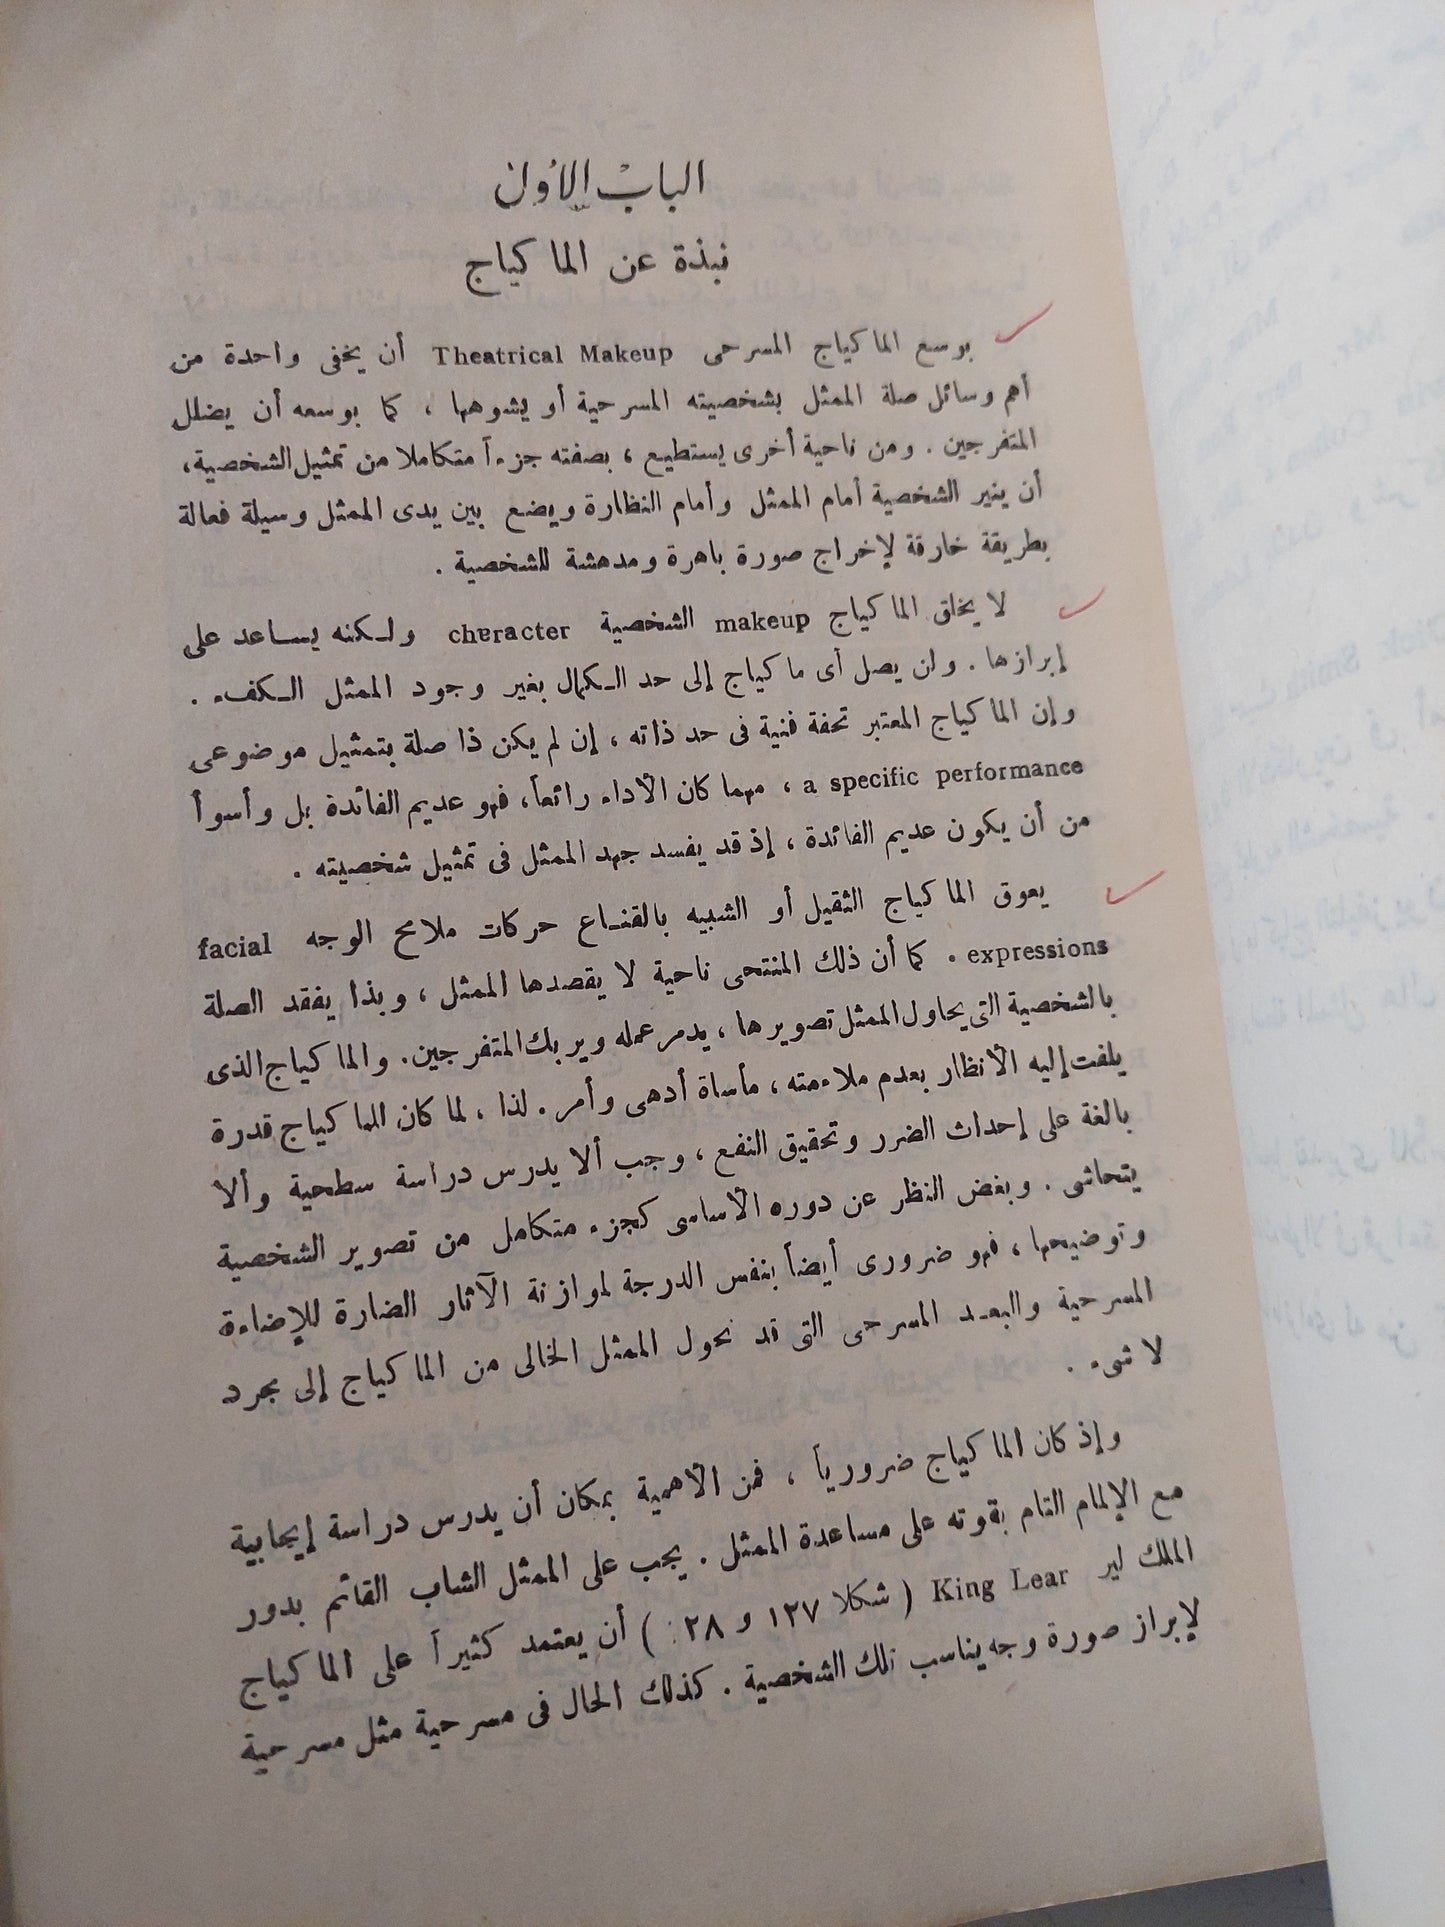 الباب الأول
نبذة عن الماكياج
بوسع الماكياج المسرحى Theatrical Makeup أن يخفى واحدة من
أهم وسائل صلة الممثل بشخصيته المسرحية أو يشوهها ، كما بوسعه أن يضلل
المتفرجين . ومن ناحية أخرى يستطيع ، بصفته جزءاً متكاملا من تمثيل الشخصية ،
أن ينير الشخصية أمام الممثل وأمام النظارة ويضع بين يدى الممثل وسيلة فعالة
بطريقة خارقة لإخراج صورة باهرة ومدهشة للشخصية .
لا يخلق الماكياج makeup الشخصية character ولكنه يساعد على
إبرازها . ولن يصل أى ماكياج إلى حد الكمال بغير وجود الممثل الكفء .
وإن الماكياج المعتبر تحفة فنية فى حد ذاته ، إن لم يكن ذا صلة بتمثيل موضوعى
a specific performance ، مهما كان الأداء رائعاً ، فهو عديم الفائدة بل وأسوأ
من أن يكون عديم الفائدة ، إذ قد يفسد جهد الممثل فى تمثيل شخصيته .
يعوق الماكياج الثقيل أو الشبيه بالقناع حركات ملامح الوجه facial
expressions . كما أن ذلك المنتحى ناحية لا يقصدها الممثل ، وبذا يفقد الصلة
بالشخصية التى يحاول الممثل تصويرها ، يدمر عمله ويربك المتفرجين . والماكياج الذى
يلفت إليه الأنظار بعدم ملاءمته ، مأساة أدهى وأمر . لذا ، لما كان للماكياج قدرة
بالغة على إحداث الضرر وتحقيق النفع ، وجب ألا يدرس دراسة سطحية وألا
يتحاشى . وبغض النظر عن دوره الأساسى كجزء متكامل من تصوير الشخصية
وتوضيحها ، فهو ضرورى أيضاً بنفس الدرجة لموازنة الآثار الضارة للإضاءة
المسرحية والبعد المسرحى التى قد تحول الممثل الخالى من الماكياج إلى مجرد
لا شىء .
وإذ كان الماكياج ضرورياً ، فمن الأهمية بمكان أن يدرس دراسة إيجابية
مع الإلمام التام بقوته على مساعدة الممثل . يجب على الممثل الشاب القائم بدور
الملك لير King Lear ( شكلا ١٢٧ و ٢٨ ) أن يعتمد كثيراً على الماكياج
لإبراز صورة وجه يناسب تلك الشخصية . كذلك الحال فى مسرحية مثل مسرحية